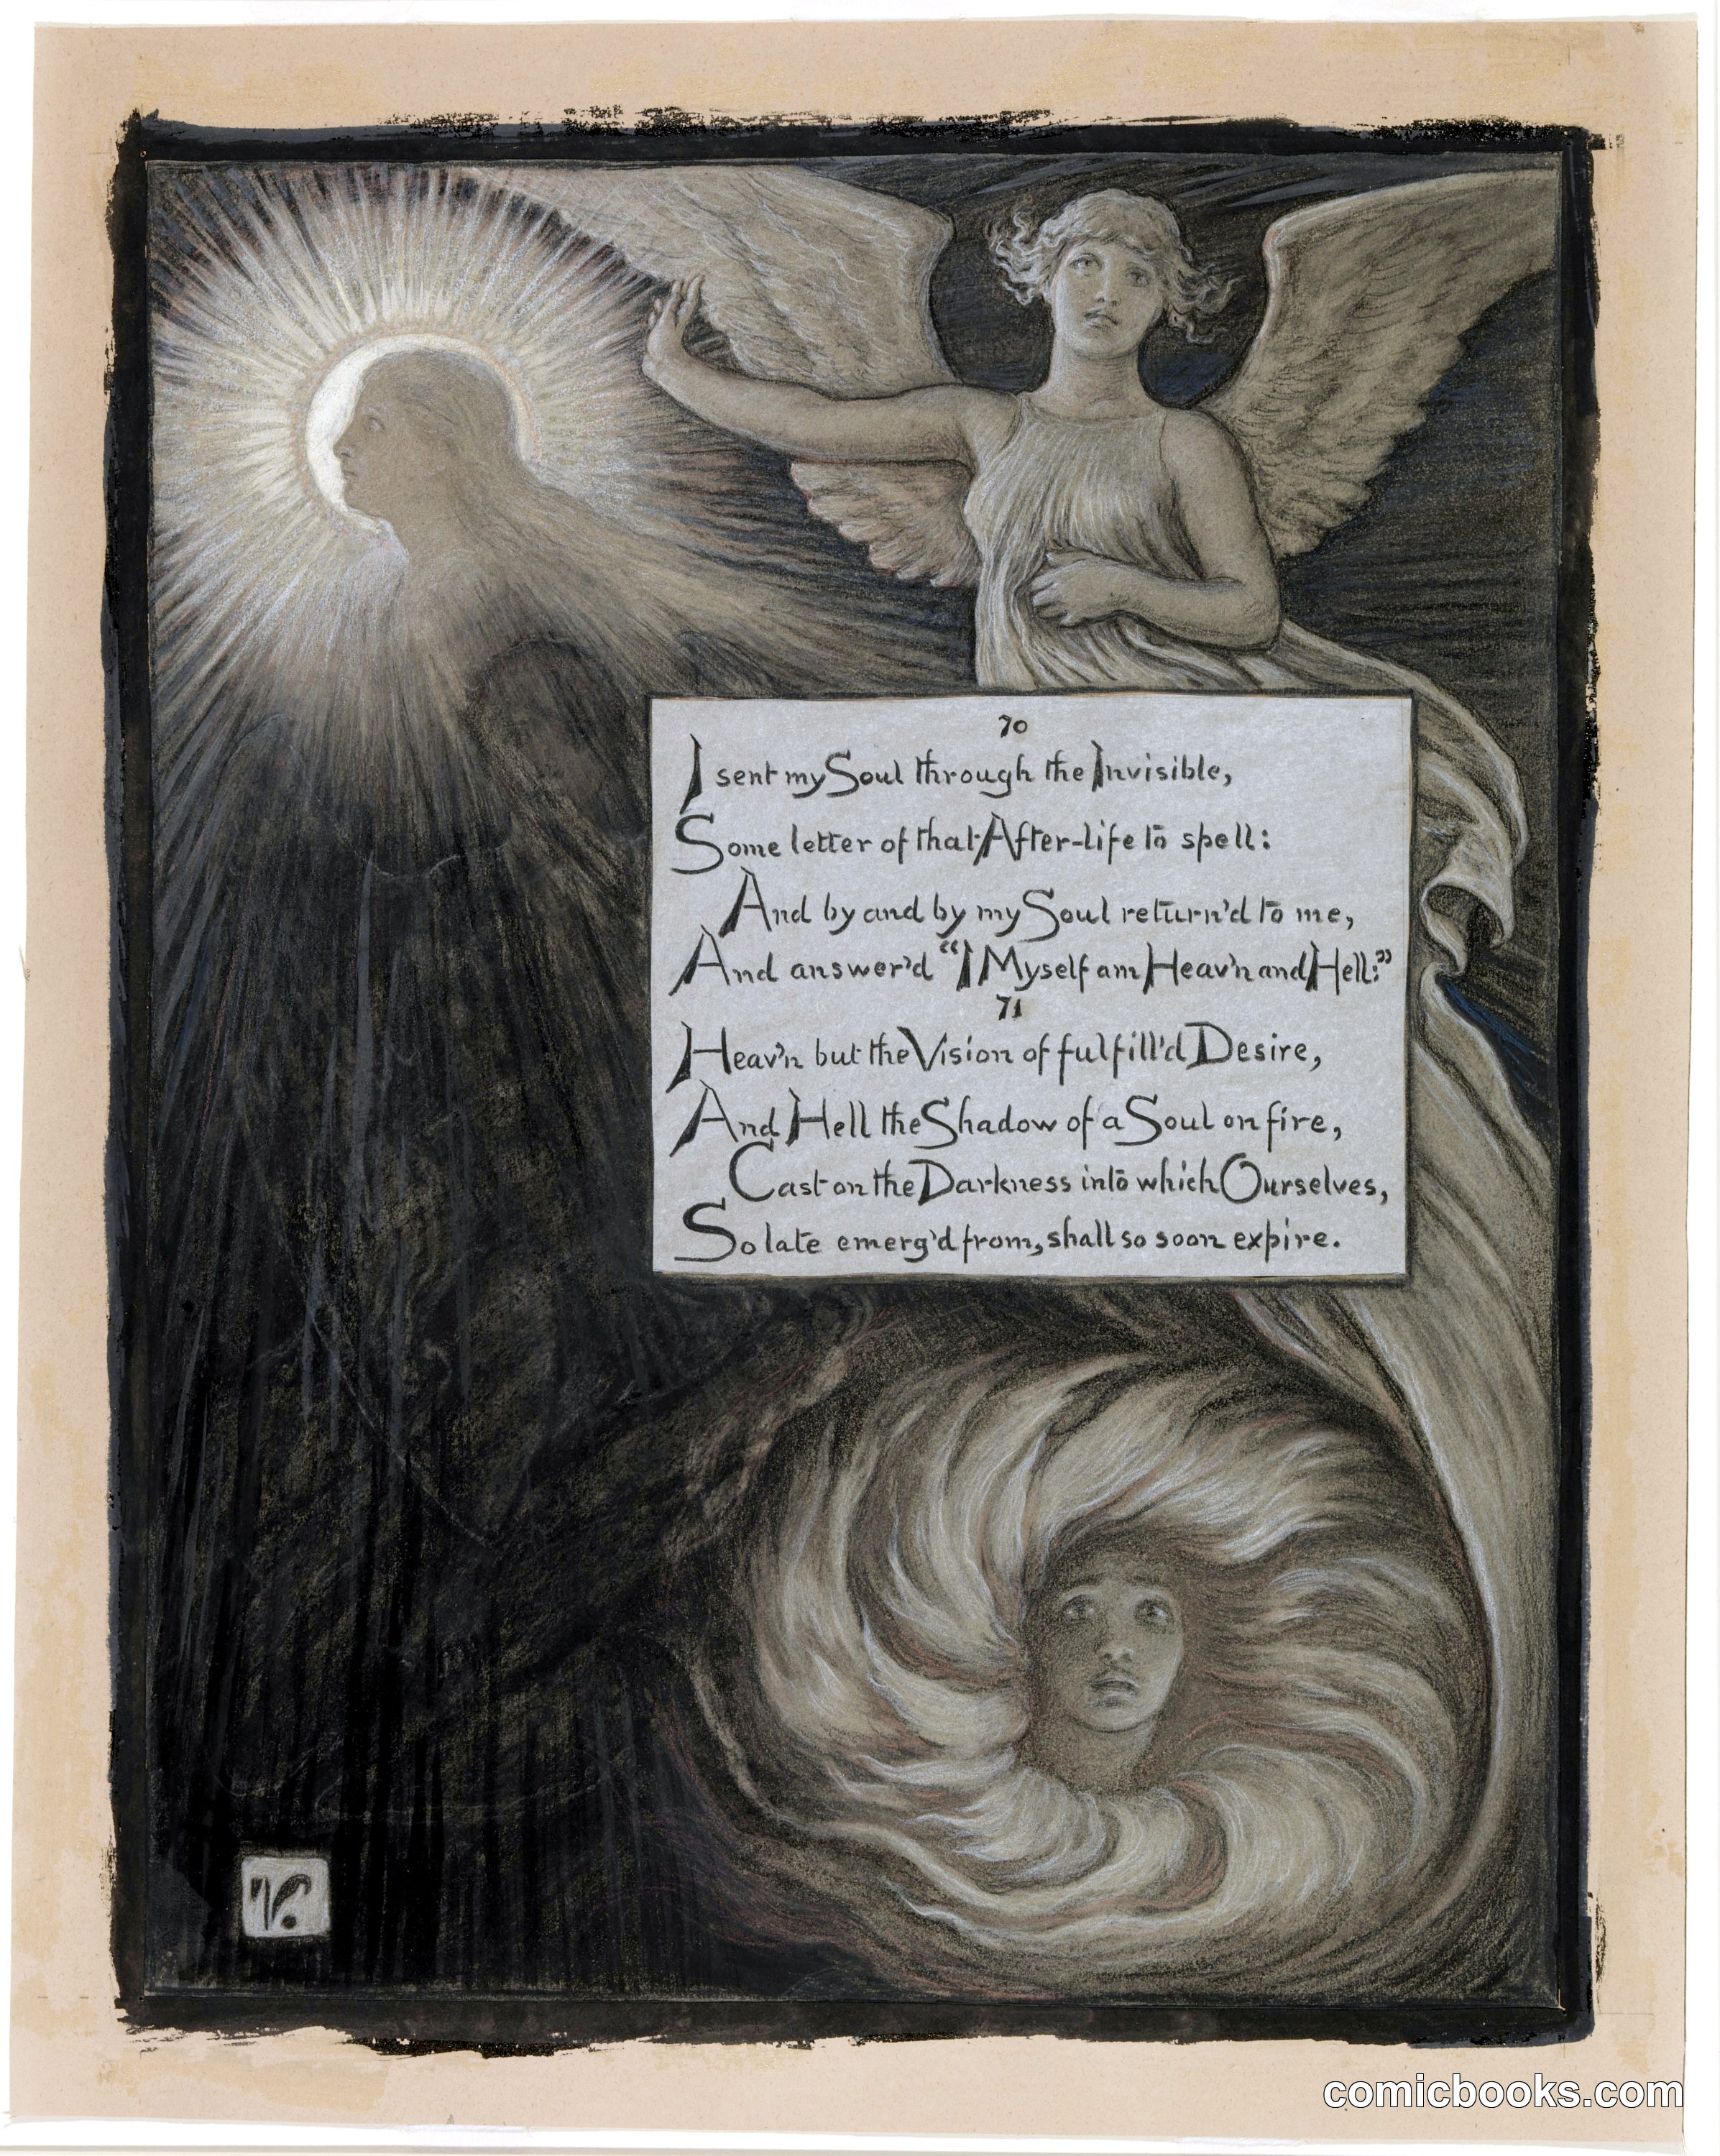 70
I sent my Soul through the Invisible,
Some letter of that After-life to spell:
And by and by my Soul return'd to me,
And answer'd "I Myself am Heav'n and Hell:"
71
Heav'n but the Vision of fulfill'd Desire,
And Hell the Shadow of a Soul on fire,
Cast on the Darkness into which Ourselves,
So late emerg'd from, shall so soon expire.
V.
comicbooks.com